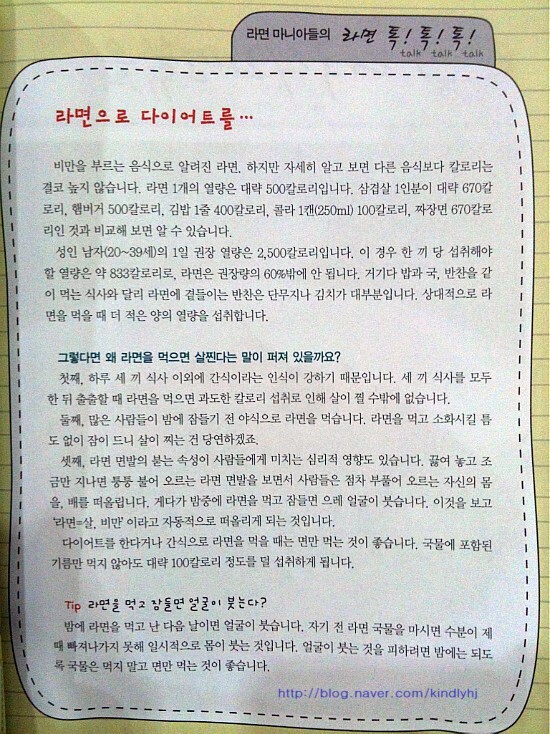 라면 마니아들의 라면 톡! 톡! 톡!
talk talk talk
라면으로 다이어트를…
비만을 부르는 음식으로 알려진 라면. 하지만 자세히 알고 보면 다른 음식보다 칼로리는
결코 높지 않습니다. 라면 1개의 열량은 대략 500칼로리입니다. 삼겹살 1인분이 대략 670칼
로리, 햄버거 500칼로리, 김밥 1줄 400칼로리, 콜라 1캔(250ml) 100칼로리, 짜장면 670칼로
리인 것과 비교해 보면 알 수 있습니다.
성인 남자(20~39세)의 1일 권장 열량은 2,500칼로리입니다. 이 경우 한 끼 당 섭취해야
할 열량은 약 833칼로리로, 라면은 권장량의 60%밖에 안 됩니다. 거기다 밥과 국, 반찬을 같
이 먹는 식사와 달리 라면에 곁들이는 반찬은 단무지나 김치가 대부분입니다. 상대적으로 라
면을 먹을 때 더 적은 양의 열량을 섭취합니다.
그렇다면 왜 라면을 먹으면 살찐다는 말이 퍼져 있을까요?
첫째, 하루 세 끼 식사 이외에 간식이라는 인식이 강하기 때문입니다. 세 끼 식사를 모두
한 뒤 출출할 때 라면을 먹으면 과도한 칼로리 섭취로 인해 살이 찔 수밖에 없습니다.
둘째, 많은 사람들이 밤에 잠들기 전 야식으로 라면을 먹습니다. 라면을 먹고 소화시킬 틈
도 없이 잠이 드니 살이 찌는 건 당연하겠죠.
셋째, 라면 면발의 붇는 속성이 사람들에게 미치는 심리적 영향도 있습니다. 끓여 놓고 조
금만 지나면 퉁퉁 불어 오르는 라면 면발을 보면서 사람들은 점차 부풀어 오르는 자신의 몸
을, 배를 떠올립니다. 게다가 밤중에 라면을 먹고 잠들면 으레 얼굴이 붓습니다. 이것을 보고
'라면=살, 비만' 이라고 자동적으로 떠올리게 되는 것입니다.
다이어트를 한다거나 간식으로 라면을 먹을 때는 면만 먹는 것이 좋습니다. 국물에 포함된
기름만 먹지 않아도 대략 100칼로리 정도를 덜 섭취하게 됩니다.
Tip 라면을 먹고 잠들면 얼굴이 붓는다?
밤에 라면을 먹고 난 다음 날이면 얼굴이 붓습니다. 자기 전 라면 국물을 마시면 수분이 제
때 빠져나가지 못해 일시적으로 몸이 붓는 것입니다. 얼굴이 붓는 것을 피하려면 밤에는 되도
록 국물은 먹지 말고 면만 먹는 것이 좋습니다.
http://blog.naver.com/kindlyhj